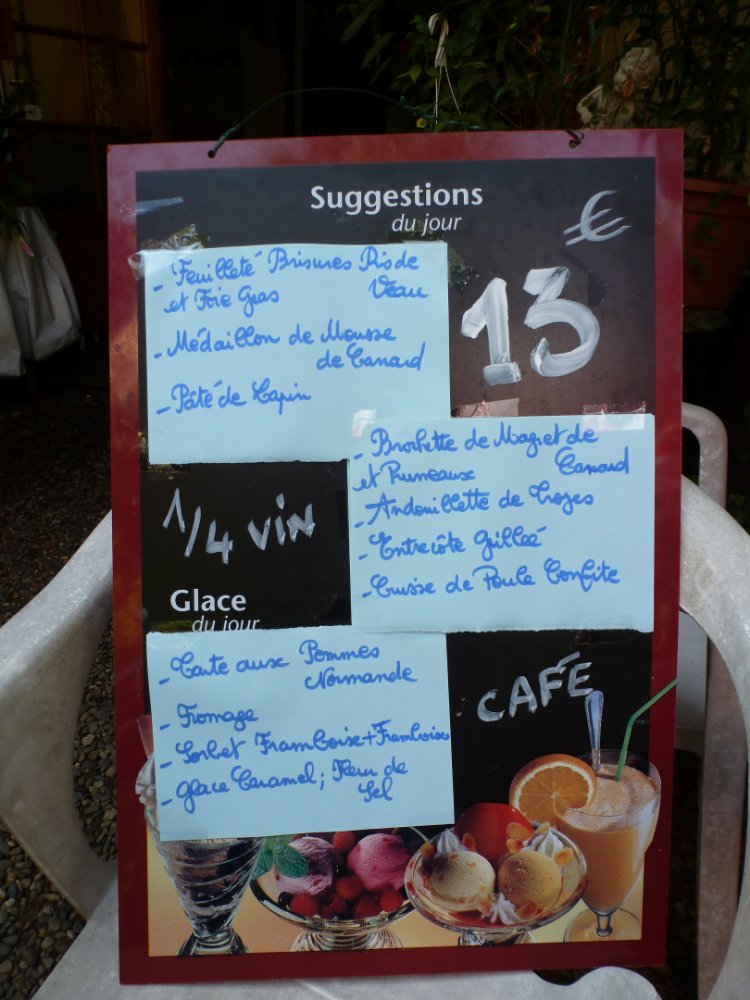 Suggestions
du jour
€
13
- Feuilleté Brisures Ris de
et Foie Gras Veau
- Médaillon de Mousse
de Canard
- Pâté de Lapin
- Brochette de Magret de
et Pruneaux Canard
- Andouillette de Troyes
- Entrecôte Grillée
- Cuisse de Poule Confite
1/4 VIN
Glace
du jour
- Tarte aux Pommes
Normande
- Fromage
- Sorbet Framboise + Framboise
- Glace Caramel; Fleur de
Sel
CAFÉ